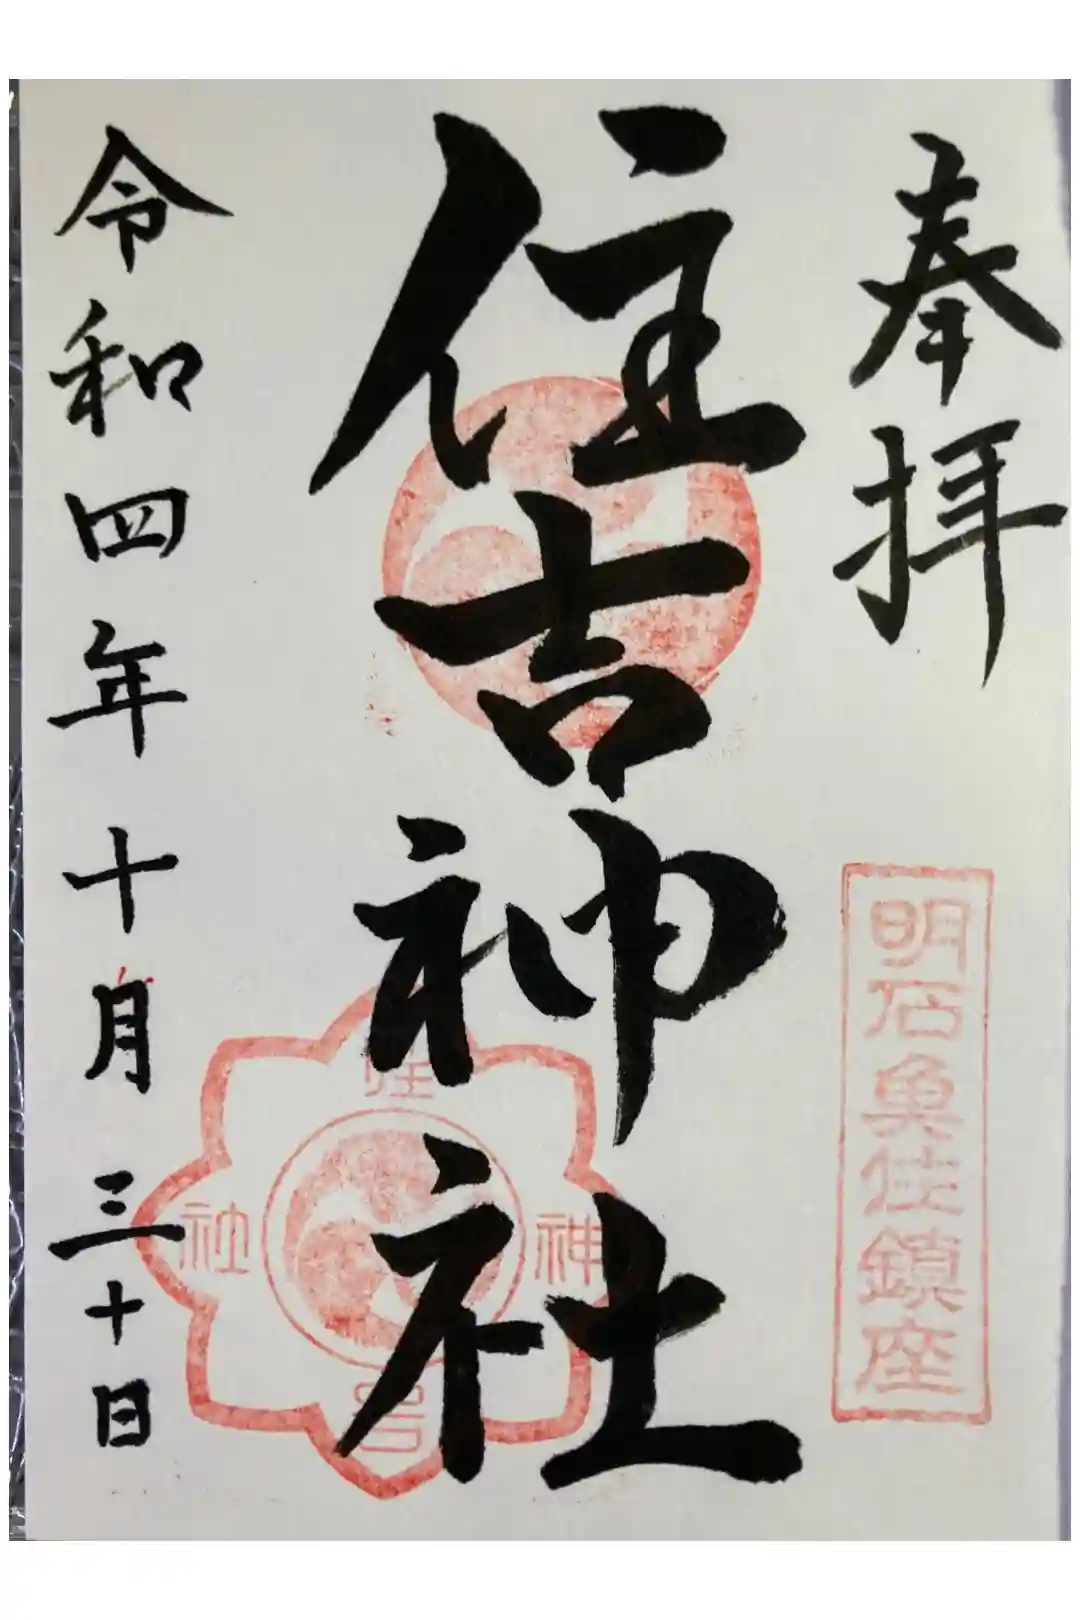 奉拝
明石魚住鎮座
住吉神社
住
吉
神
社
令和四年十月三十日